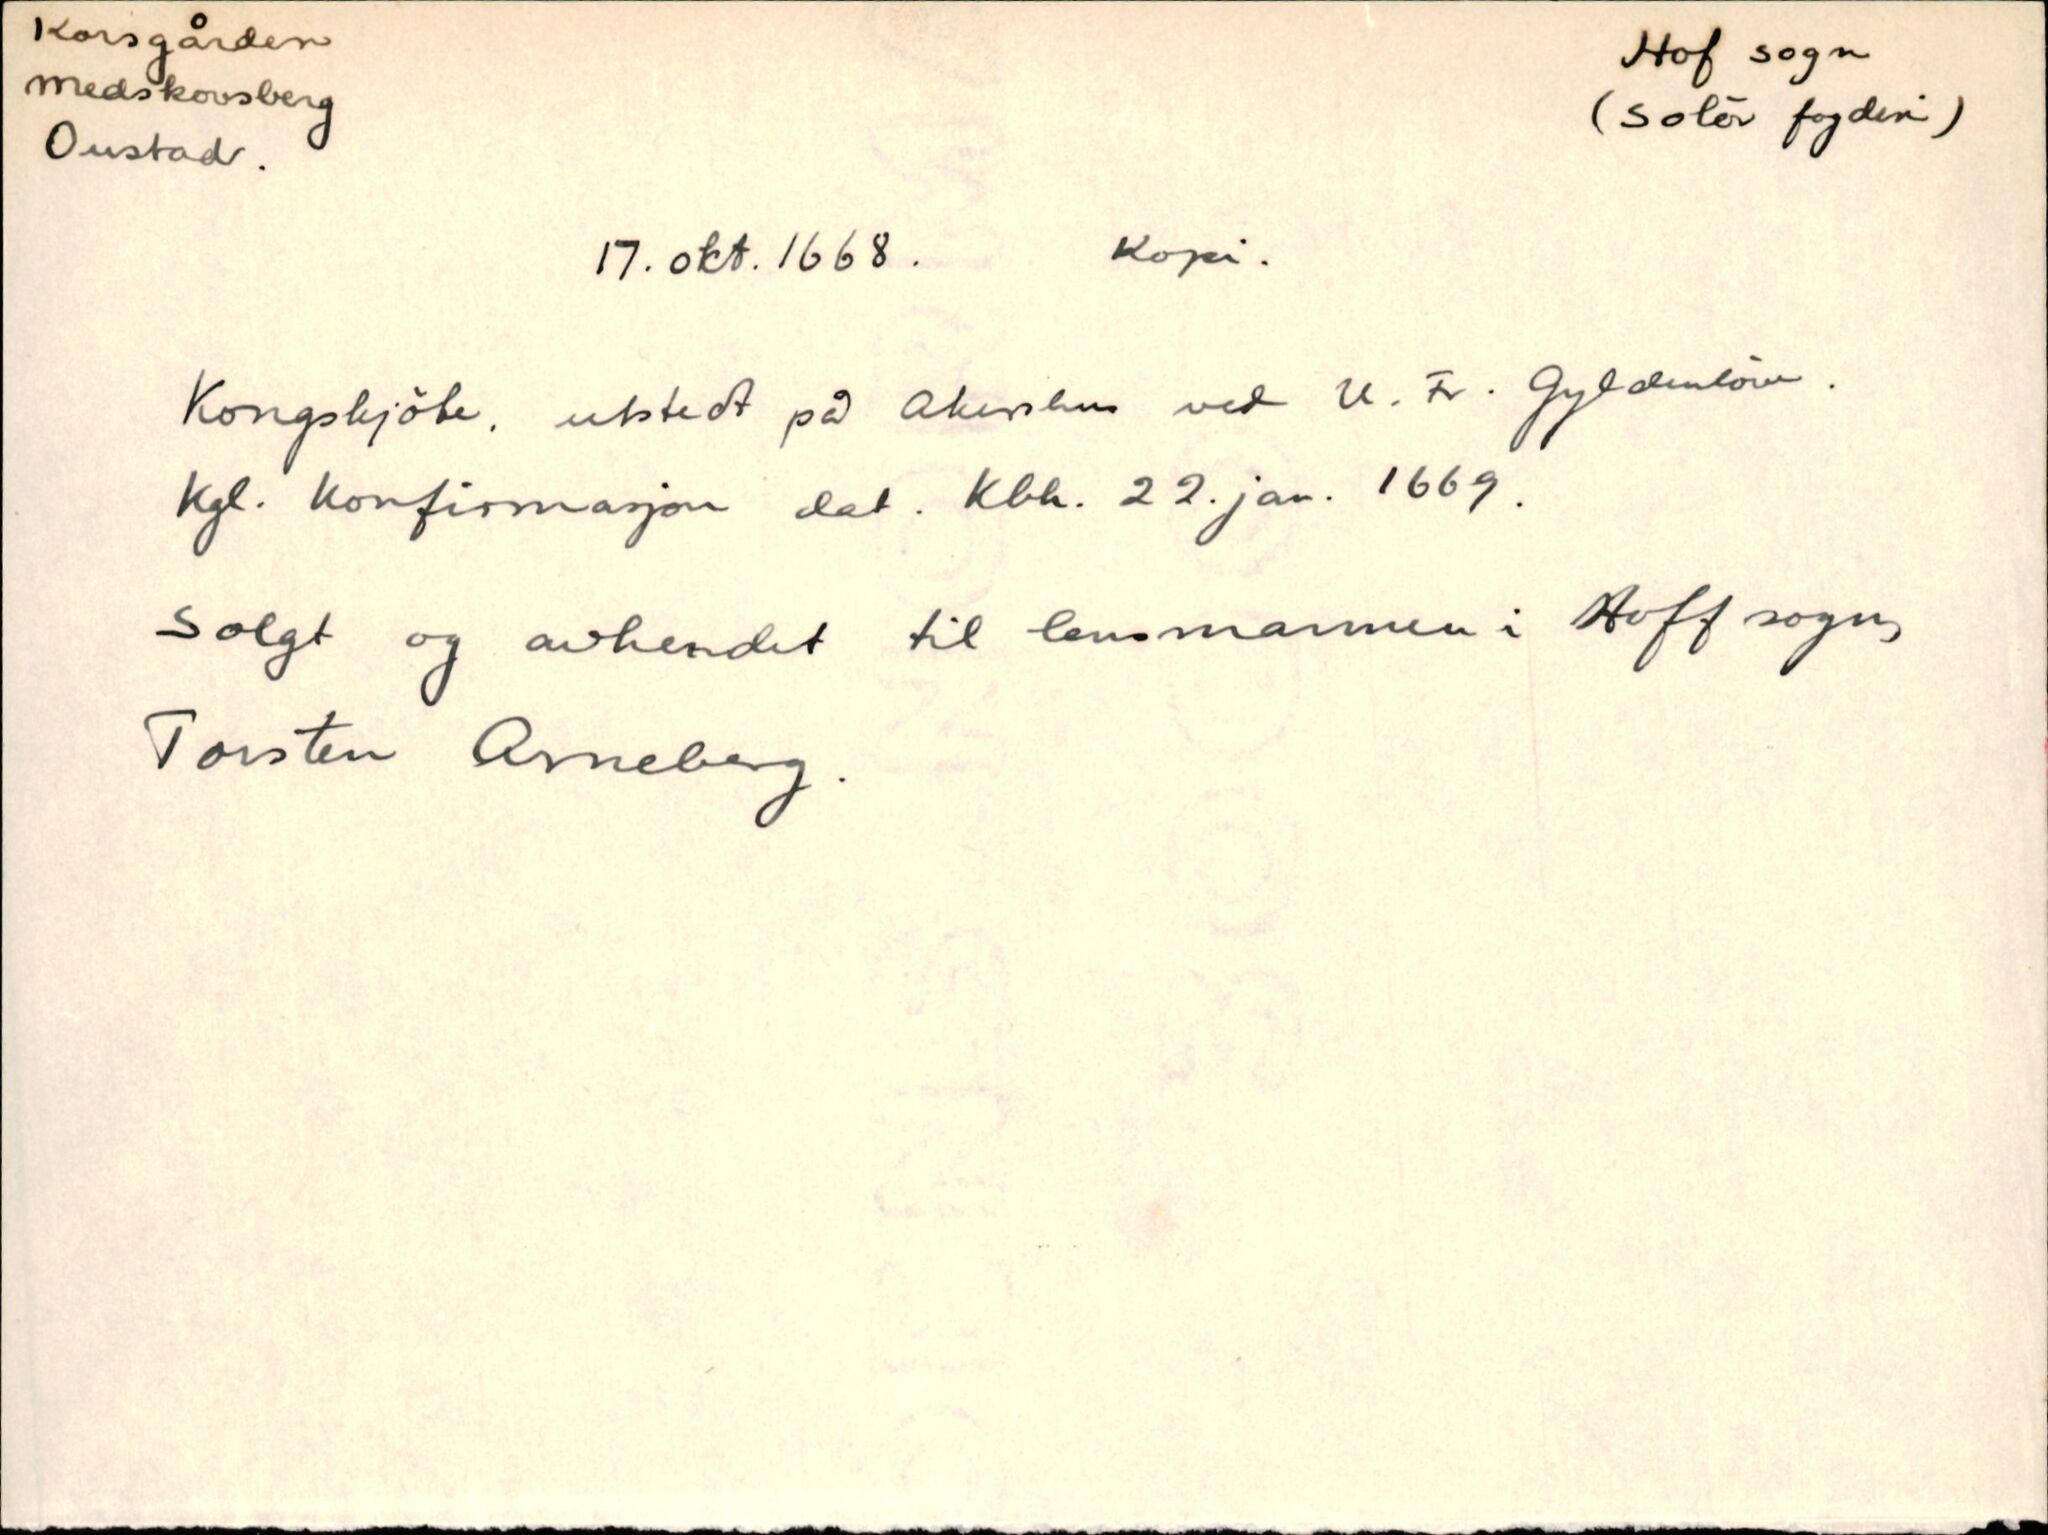 Korsgården
Medskovsberg
Oustad.
Hof sogn
(Solör fogderi)
17. okt. 1668. Kopi.
Kongskjöte, utstedt på Akershus ved U. Fr. Gyldenlöve.
Kgl. konfirmasjon dat. Kbh. 22. jan. 1669.
Solgt og avhendet til lensmannen i Hoff sogn,
Torsten Arneberg.